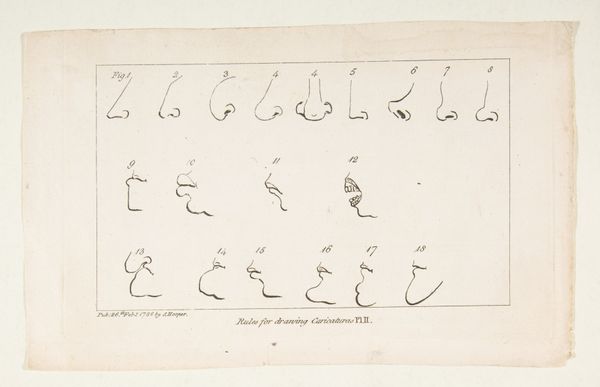 Fig.1 2 3 4 4 5 6 7 8
9 10 11 12
13 14 15 16 17 18
Pub. 26.th Feb.y 1788 by S. Hooper.
Rules for drawing Caricaturas Pl. II.